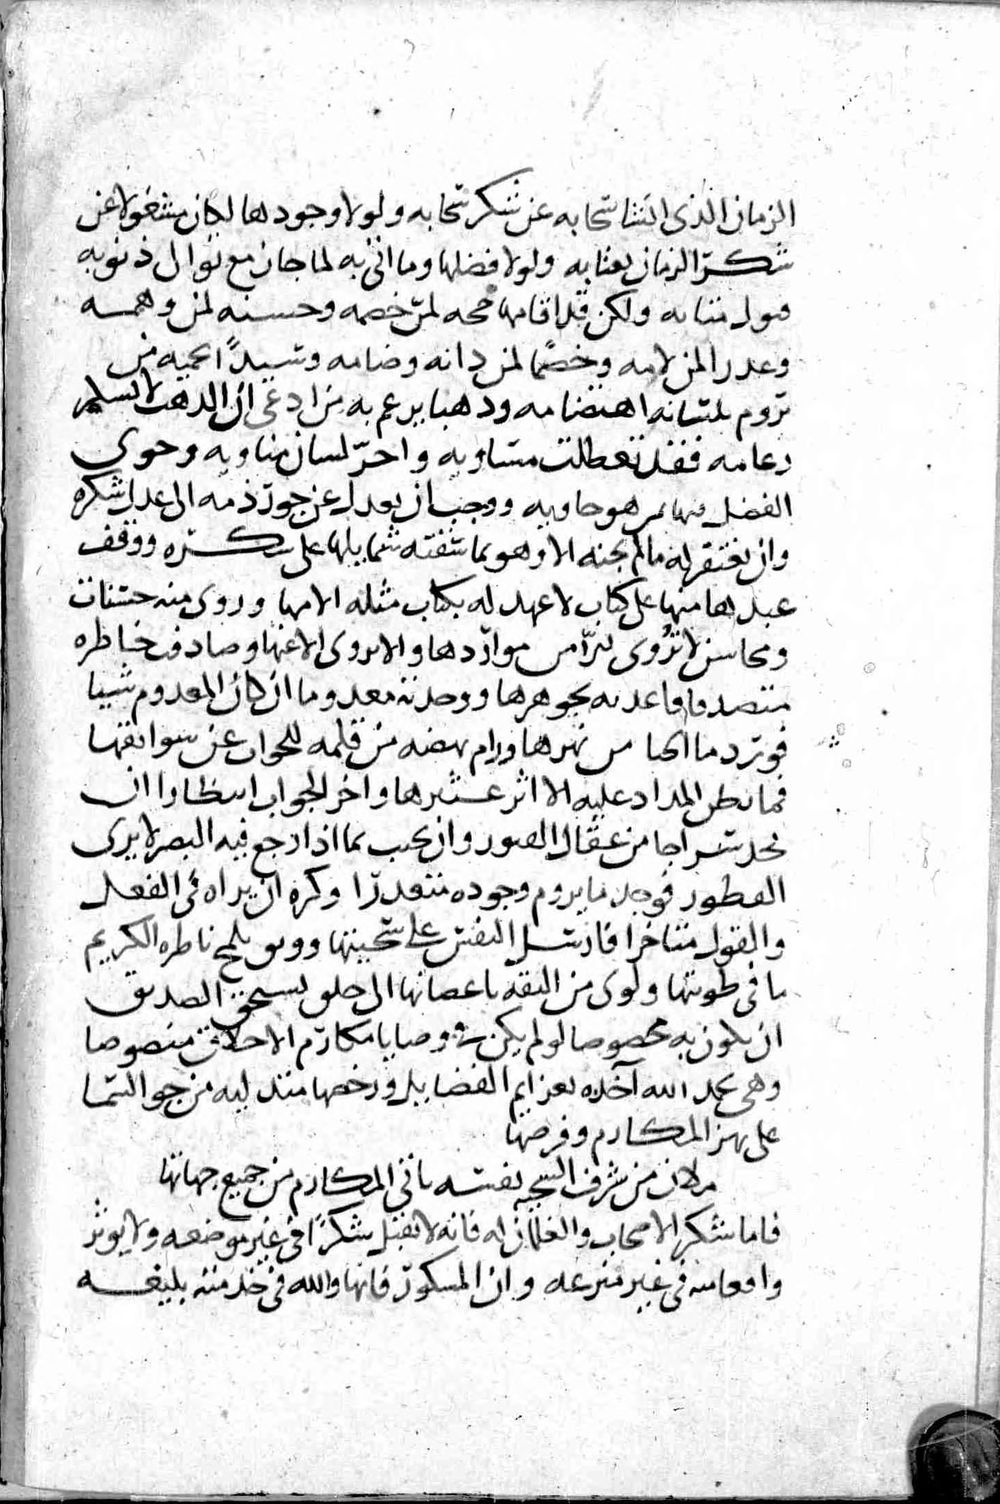 الزمان الذي انتشا سحابه عن شكر سحابه ولولا وجودها لكان مشغولا عن
شكر الزمان بعتابه ولولا فضلها وما اتى به لما جاز مع توال ذنوبه
قبول متابه ولكن قد اقامها حجة لمن خصمه وحسنة لمن وهمه
وعذرا لمن لامه وخصما لمن ذانه وضامه وسيدا يحميه من
تروم بلسانه اهتضامه ومذهبا يرغم به من ادعى ان الدهر لا يسلم
زعامه فقد تعطلت مساويه واخر لسان مناويه وحوى
الفضل منها من هو حاويه ووجب ان يعدل عن جور ذمه الى عدل شكره
وان يغتفر له ما لم يجنه الا وهو بما سقته شمايلها على سكره ووقف
عبدها منها على كتاب لا عهد له بكتاب مثله الا منها وروى منه حسنات
ومحاسن لا تروى الا من مواردها ولا تروى الا عنها وصادف خاطره
متصدفا فاعدته بجوهرها ووجدته معدوما ان كان المعدوم شيئا
فورد ماء الحيا من نهرها ورام نهضة من قلمه للجواب عن سوابقها
فما نطق المداد عليه الا اثر عشرها واخر الجواب انتظارا ان
يجد سراحا من عقال الفتور وان يجيب بما اذا رجع فيه البصر لا يرى
الفطور فوجد ما يروم وجوده متعذرا وكره ان يراه في الفعل
والقول متاخرا فارسل النفس على سجيتها ووثق بلمح ناظره الكريم
ما في طويتها ولوى من الثقة باغضائها الى خلق يستحق الصديق
ان يكون به مخصوصا لو لم يكن في وصايا مكارم الاخلاق منصوصا
وهي بحمد الله آخذة بعزايم الفضايل ورخصها منتدليه من جو السما
على نهز المكارم وفرصها
ملآن من شرف السجية نفسه ياتي المكارم من جميع جهاتها
فاما شكر الاصحاب والغلمان له فانه لا تقبل شكرا في غير موضعه ولا يوثر
واقعا منه في غير منزعه وان المسكور فانها والله في خدمته بليغه